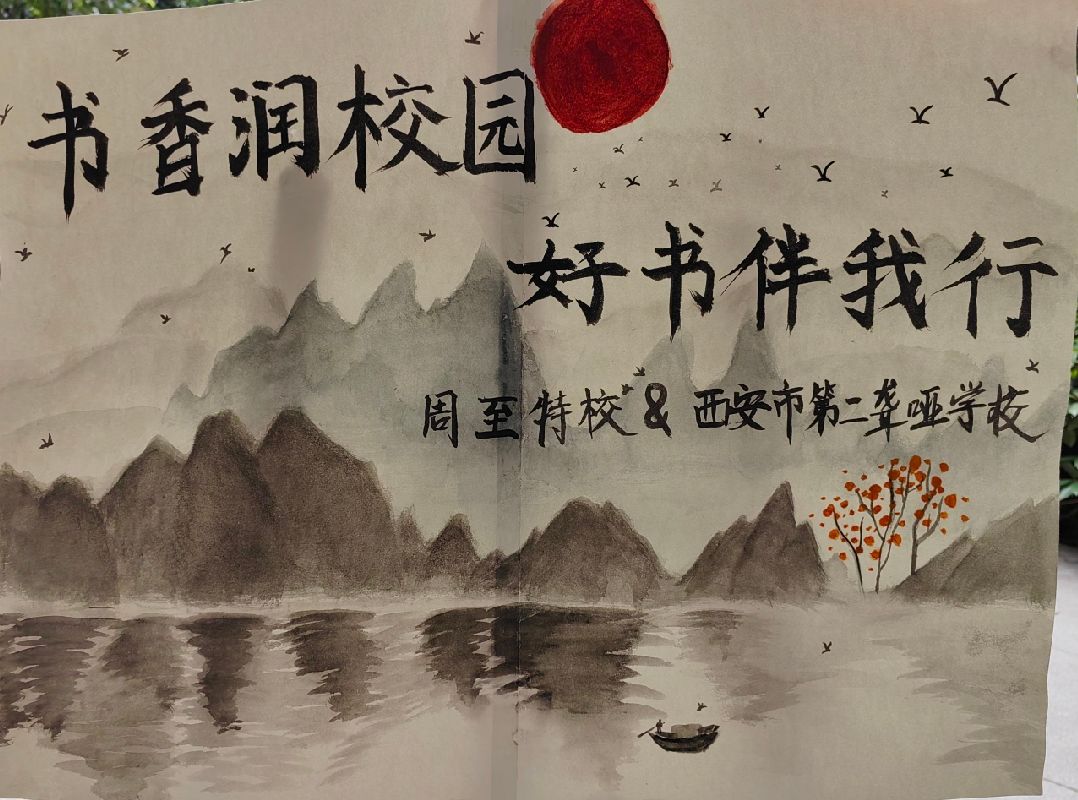 书香润校园
好书伴我行
周至特校&西安市第二聋哑学校